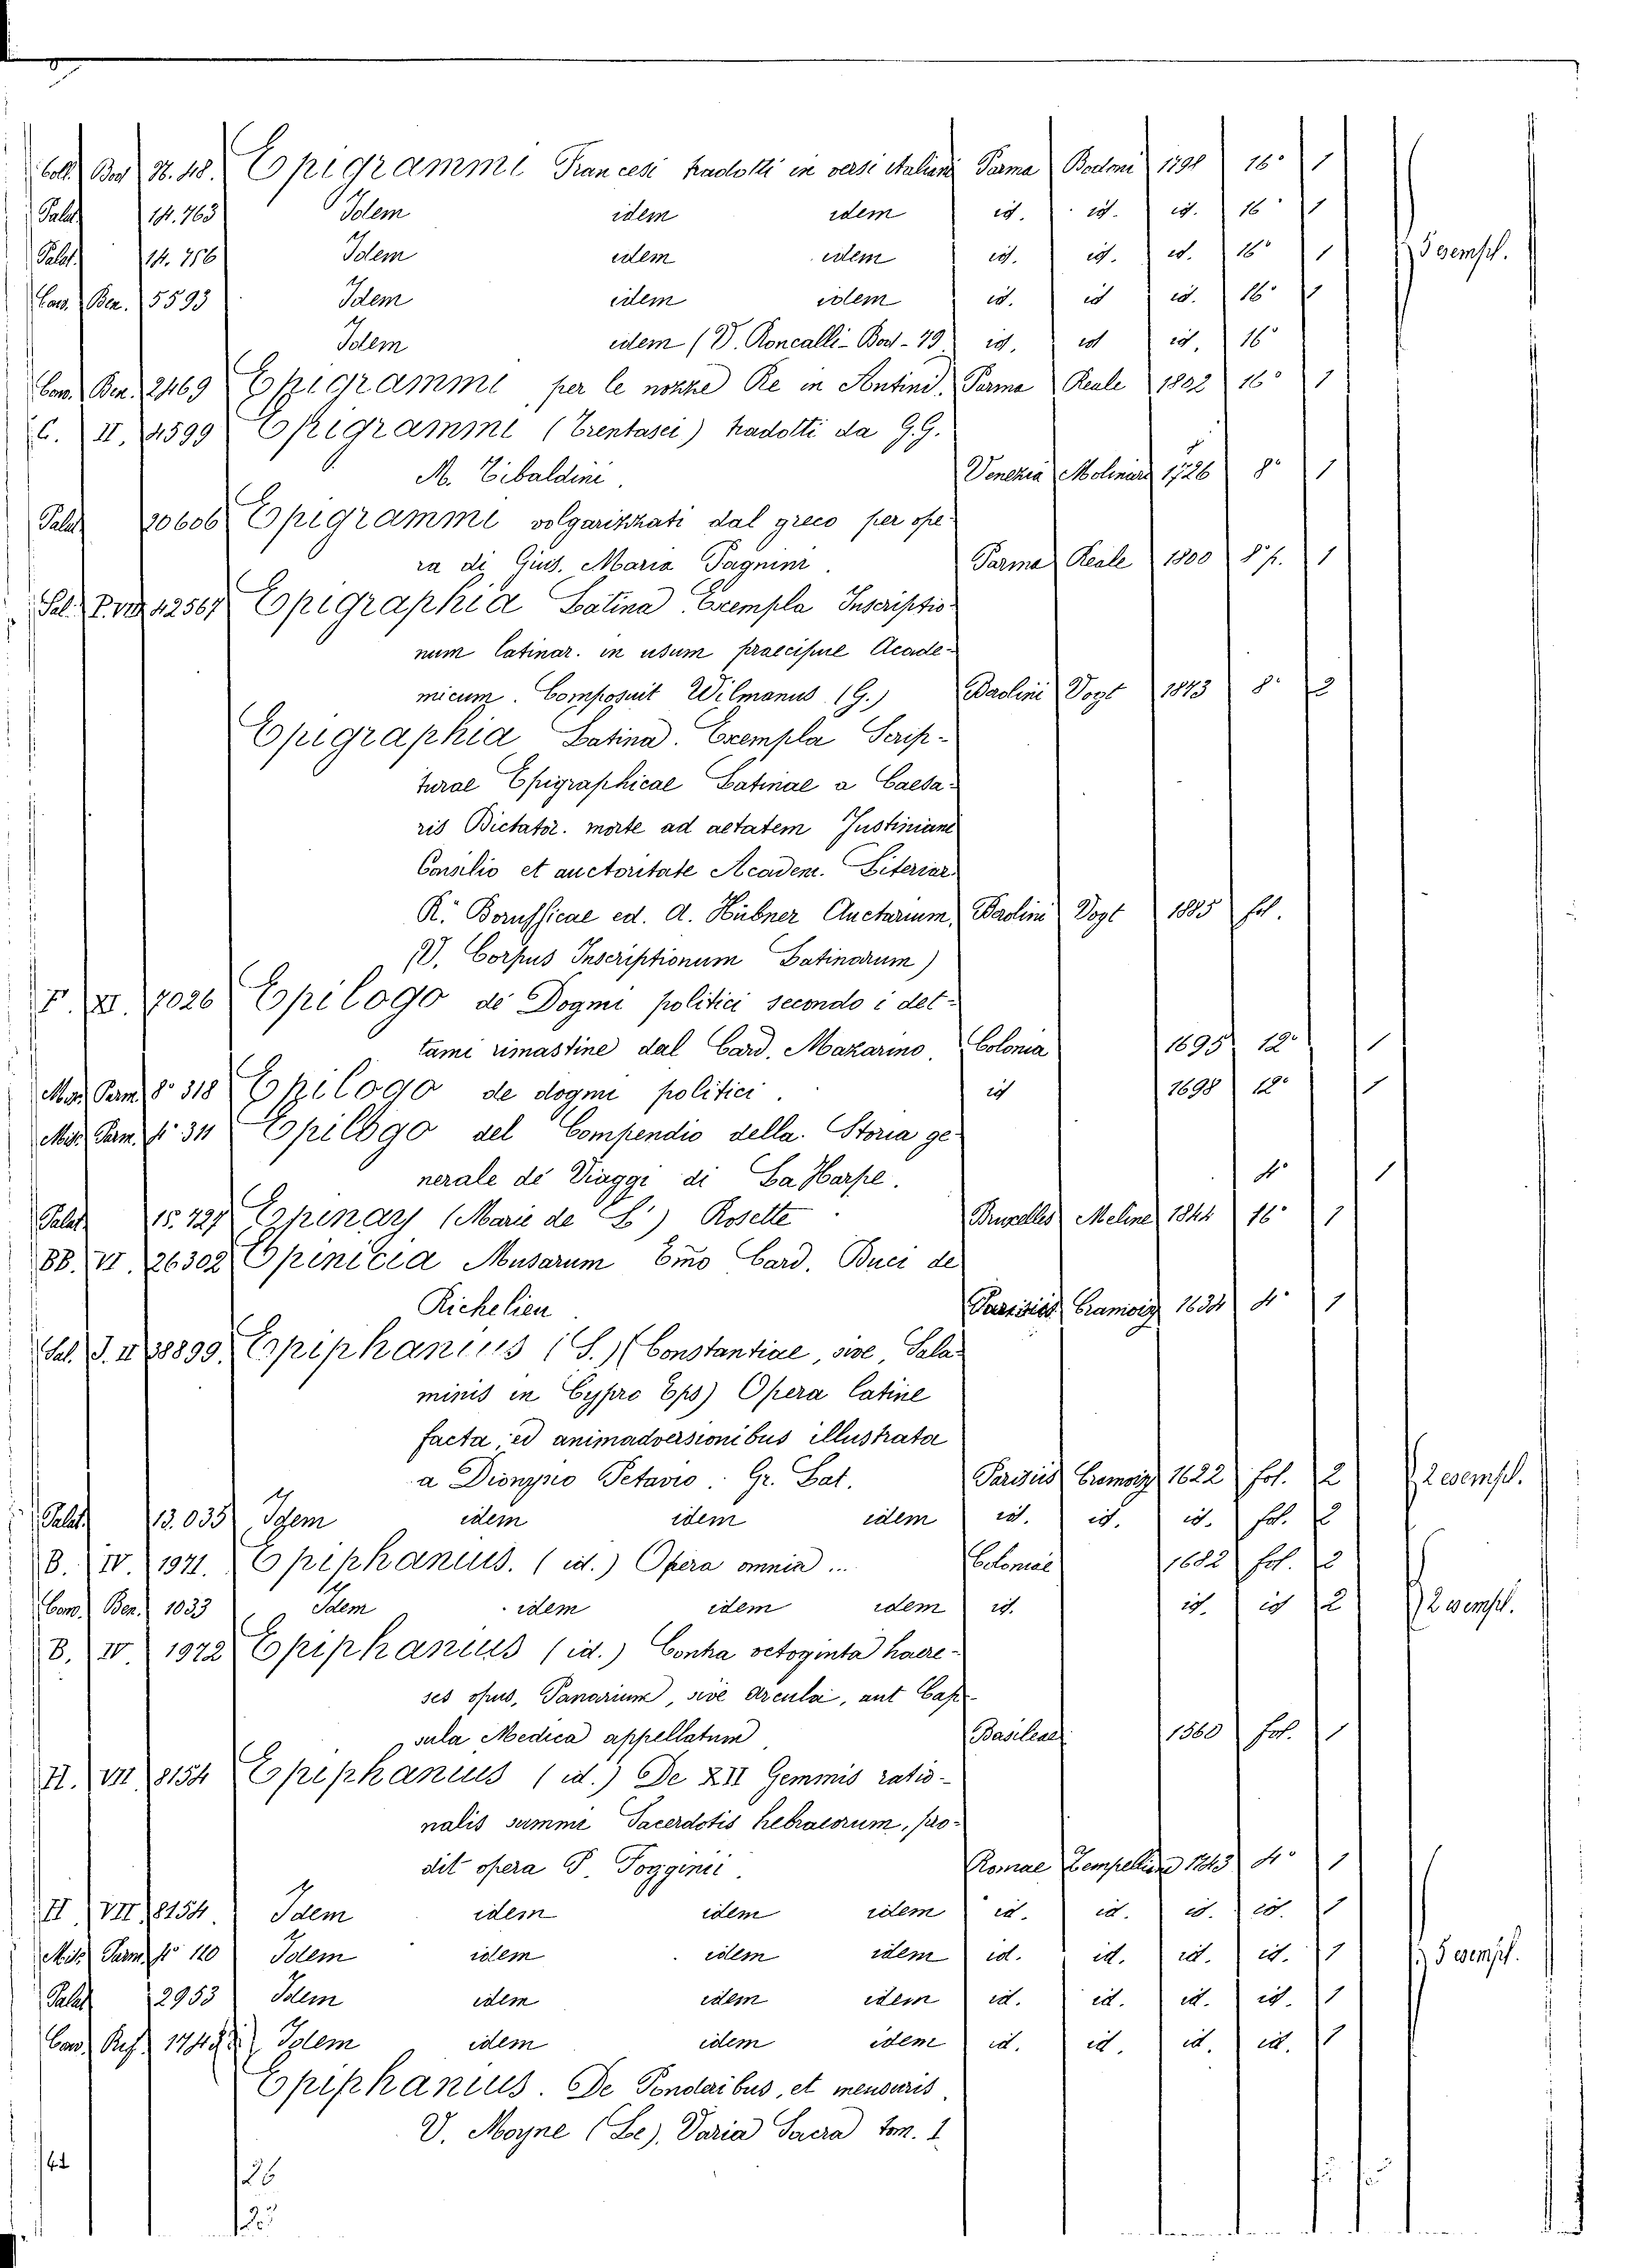 Coll. Bod. N. 48. Epigrammi Francesi tradotti in versi italiani Parma Bodoni 1798 16° 1
Palat. 14.763 Idem idem idem id. id. id. 16° 1
Palat. 14.756 Idem idem idem id. id. id. 16° 1 5 esempl.
Cass. Ben. 5593 Idem idem idem id. id id. 16° 1
Idem idem (V. Roncalli-Bod-79 id. id id. 16°
Con. Ben. 2469 Epigrammi per le nozze Re in Antini. Parma Reale 1822 16° 1
C. II. 4599 Epigrammi (Trentasei) tradotti da G.G.
M. Tibaldini. Venezia Molinari 1726 8° 1
Palat 20606 Epigrammi volgarizzati dal greco per ope-
ra di Gius. Maria Pagnini. Parma Reale 1800 8° p. 1
Sal. 42567 Epigraphia Latina. Exempla Inscriptio-
num latinar. in usum praecipue Acade-
micum. Composuit Wilmanus (G.) Baolini Vogt 1873 8° 2
Epigraphia Latina. Exempla Scrip-
turae Epigraphicae Latinae a Caesa-
ris Dictator. morte ad aetatem Justiniani
Consilio et auctoritate Academ. Literiar.
R. Borussicae ed. A. Hübner Auctarium, Baolini Vogt 1885 fol.
(V. Corpus Inscriptionum Latinarum)
F. XI. 7026 Epilogo de Dogmi politici secondo i det-
tami rimastine dal Card. Mazarino. Colonia 1695 12° 1
Mis. Parm. 8° 318 Epilogo de dogmi politici. id 1698 12° 1
Mis. Parm. f° 311 Epilogo del Compendio della Storia ge-
nerale de Viaggi di La Harpe. 4° 1
Palat 15.727 Epinay (Marie de L') Rosette Bruxelles Meline 1844 16° 1
BB. VI. 26302 Epinicia Musarum Emo Card. Buci de
Richelieu Parisiis Cramoisy 1634 4° 1
Sal. J. II 38899 Epiphanius (S.) (Constantiae, sive, Sala-
minis in Cypro Eps) Opera latine
facta, ed animadversionibus illustrata
a Dionysio Petavio. Gr. Lat. Parisiis Cramoisy 1622 fol. 2 2 esempl.
Palat 13.035 Idem idem idem idem id. id. id. fol. 2
B. IV. 1971. Epiphanius. (id.) Opera omnia ... Coloniae 1682 fol. 2
Con. Ben. 1033 Idem idem idem idem id. id. id 2 2 esempl.
B. IV 1972 Epiphanius (id.) Contra octoginta haere-
ses opus, Panarium, sive Arcula, aut Cap-
sula Medica appellatum Basileae 1560 fol. 1
H. VII 8154 Epiphanius (id.) De XII Gemmis ratio-
nalis summi Sacerdotis hebraeorum, pro-
dit opera P. Fogginii. Romae Zempellina 1743 4° 1
H VII 8154 Idem idem idem idem id. id. id. id. 1
Mis. Parm. f° 120 Idem idem idem idem id. id. id. id. 1 5 esempl.
Palat 2953 Idem idem idem idem id. id. id. id. 1
Con. Ref. Idem idem idem idem id. id. id. id. 1
Epiphanius. De Ponderibus, et mensuris.
V. Moyne (Le). Varia Sacra tom. 1
26